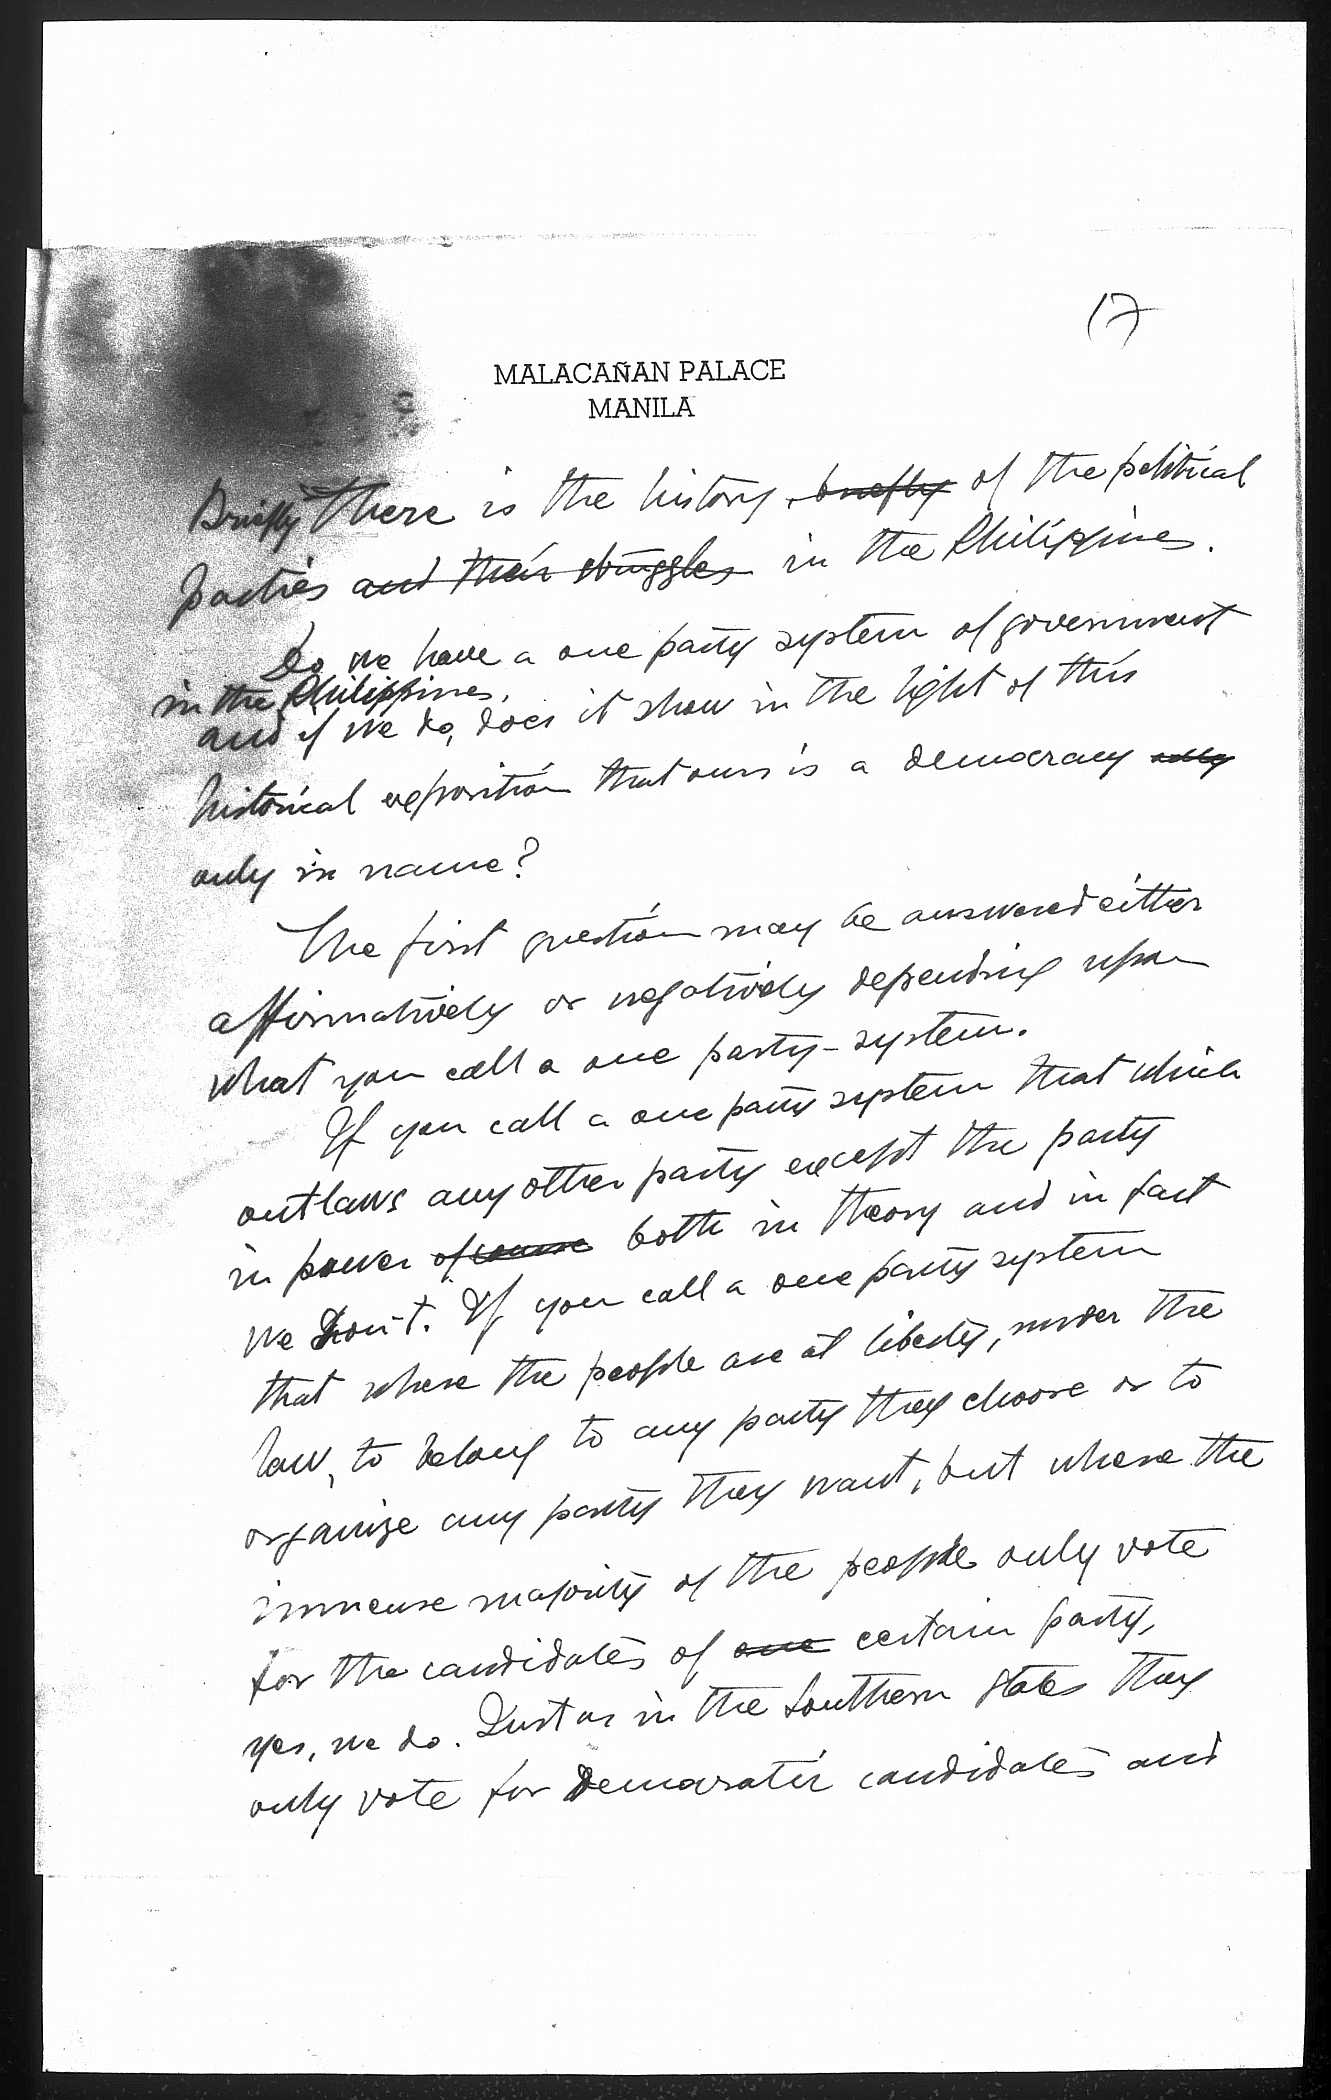 17
MALACAÑAN PALACE
MANILA
Briefly there is the history, briefly of the political
parties and their struggles in the Philippines.
Do we have a one party system of government
in the Philippines,
and if we do, does it show in the light of this
historical exposition that ours is a democracy only
only in name?
The first question may be answered either
affirmatively or negatively depending upon
what you call a one party-system.
If you call a one party system that which
outlaws any other party except the party
in power of course both in theory and in fact
we don't. If you call a one party system
that where the people are at liberty, under the
law, to belong to any party they choose or to
organize any party they want, but where the
immense majority of the people only vote
for the candidates of one certain party,
yes, we do. Just as in the Southern States they
only vote for Democratic candidates and